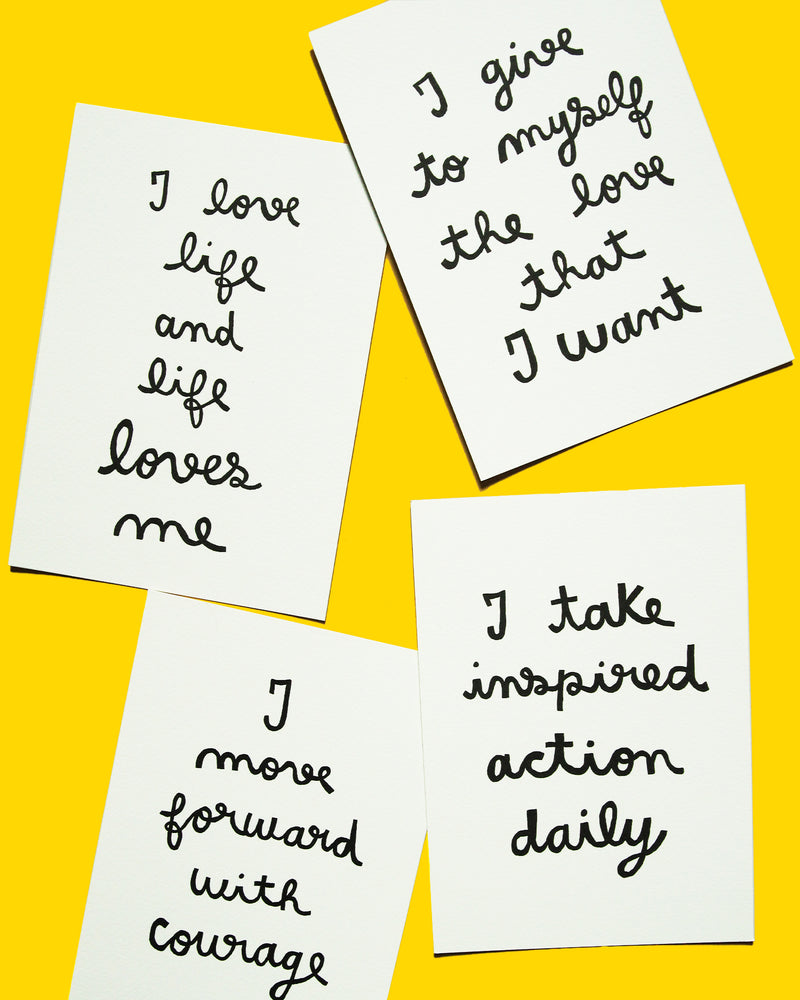 I love
life
and
life
loves
me
I give
to myself
the love
that
I want
I
move
forward
with
courage
I take
inspired
action
daily